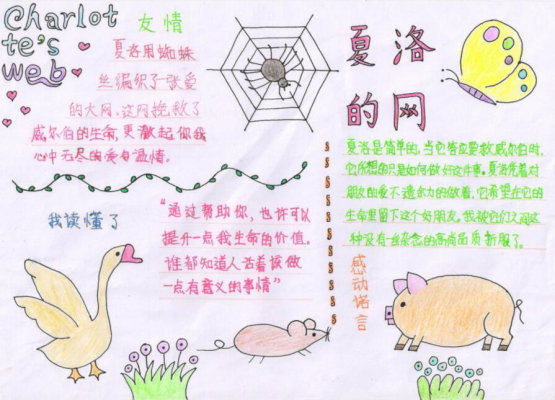 Charlot
te's
web
友情
夏洛用蜘蛛
丝编织了一张爱
的大网,这网挽救了
威尔伯的生命,更激起你我
心中无尽的爱与温情。
夏洛
的网
夏洛是简单的,当它答应要救威尔伯时,
它所想的只是如何做好这件事。夏洛凭着对
朋友的爱不遗余力的做着,它希望在它的
生命里留下这个好朋友。我被它们之间这
种没有一丝杂念的高尚品质折服了。
我读懂了
“通过帮助你,也许可以
提升一点我生命的价值。
谁都知道人活着该做
一点有意义的事情”
感动诺言